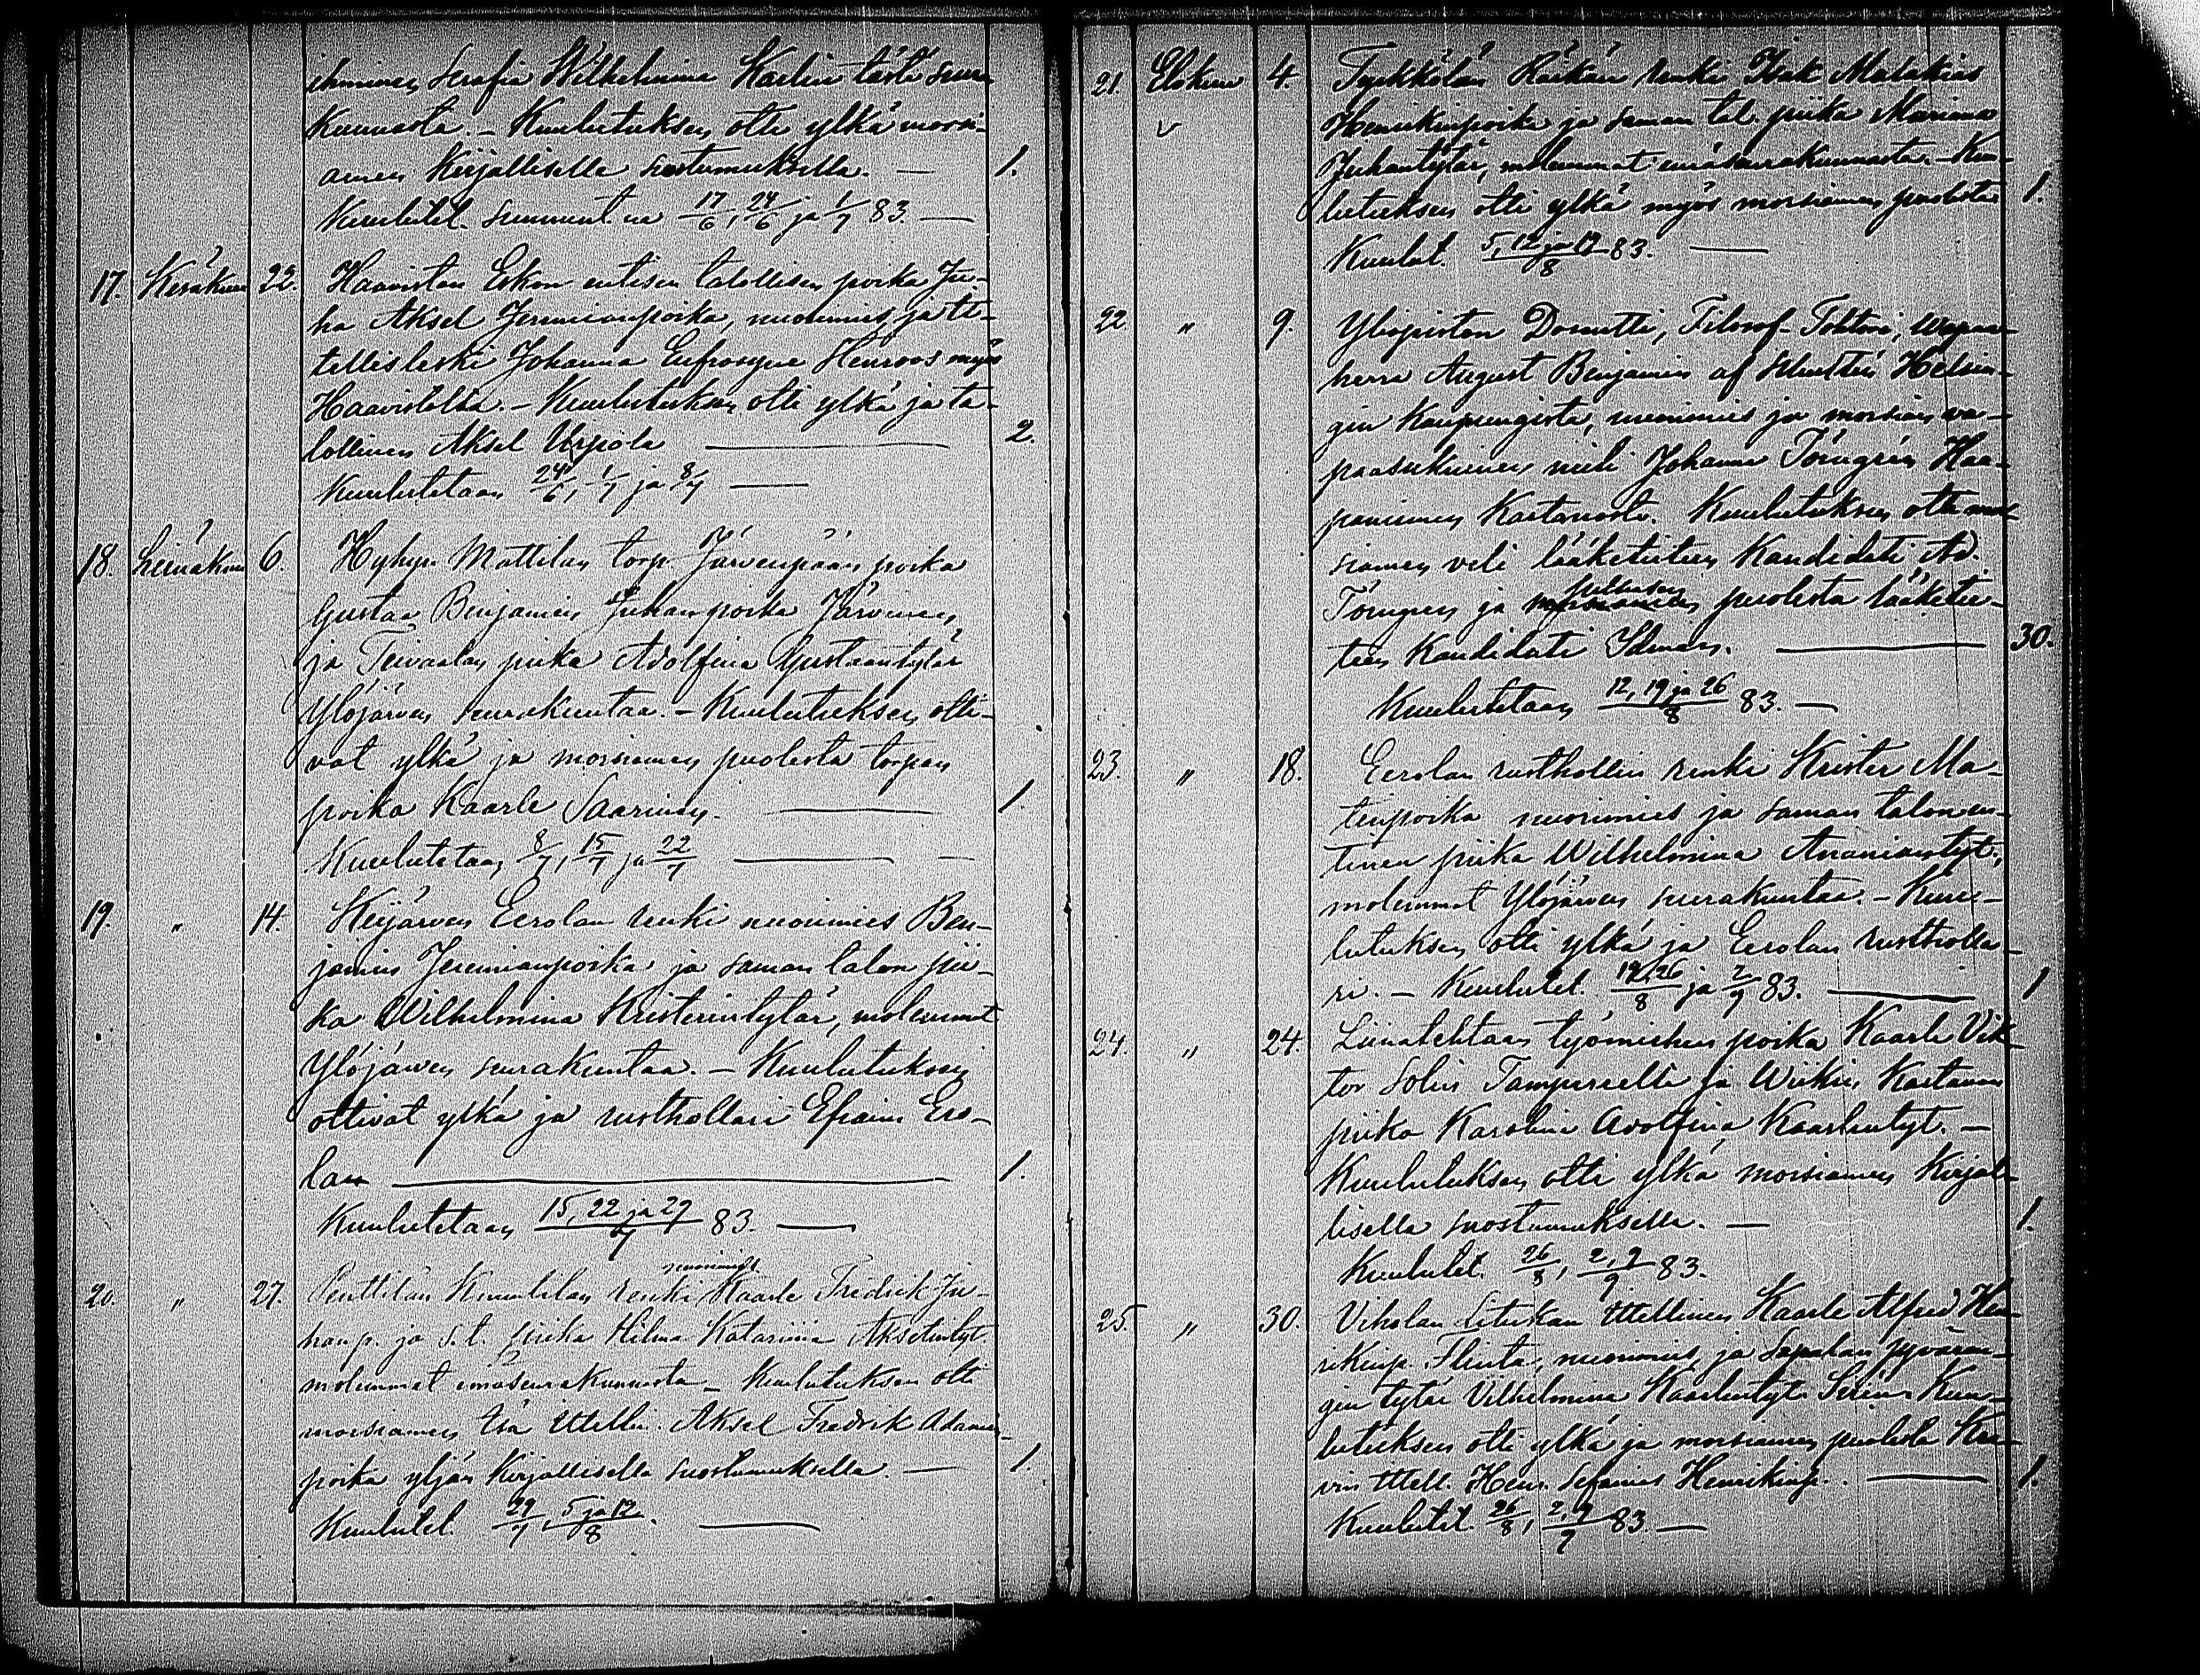 ihminen Serafia Wilhelmina Karlin tästä seura
kunnasta. – Kuulutuksen otti ylkä morsi-
amen kirjallisella suostumuksella. — 1.
Kuulutet. sunnunt. na 17/6, 24/6 ja 1/7 83. —
17. Kesäkuu 22. Haaviston Eskon entisen talollisen poika Ju-
ha Aksel Jeremianpoika, nuorimies, ja ti-
tellisleski Johanna Eufrosyne Henroos myös
Haavistolta. – Kuulutuksen otti ylkä ja ta-
lollinen Aksel Urpola — 2.
Kuulutetaan 24/6, 1/7 ja 8/7 —
18. Heinäkuu 6. Hyhyn Mattilan torp. Järvenpään poika
Gustaa Benjamin Juhanpoika Järvinen,
ja Teivaalan piika Adolfina Gustaantytär
Ylöjärven seurakuntaa. – Kuulutuksen otti-
vat ylkä ja morsiamen puolesta torpan
poika Kaarle Saarinen. — 1.
Kuulutetaan 8/7, 15/7 ja 22/7 —
19. " 14. Keijärven Eerolan renki nuorimies Ben-
jamin Jeremianpoika ja saman talon pii-
ka Wilhelmina Kristerintytär, molemmat
Ylöjärven seurakuntaa. – Kuulutuksen
ottivat ylkä ja rusthollari Efraim Ero-
lan — 1.
Kuulutetaan 15, 22 ja 29/7 83. —
20. " 27. Penttilän Kuuselan renki nuorimies Kaarle Fredrik Ju-
hanp. ja s.t. piika Hilma Katariina Akselintyt.
molemmat emäseurakunnasta – Kuulutuksen otti
morsiamen isä ittelln. Aksel Fredrik Adamin-
poika yljän kirjallisella suostumuksella. — 1.
Kuulutel. 29/7, 5 ja 12/8. —
21. Elokuu 4. Tyrkkölän Räikän renki Isak Malakias
Henrikinpoika ja saman tal. piika Mariana
Juhantytär, molemmat emäseurakunnasta. – Kuu-
lutuksen otti ylkä myös morsiamen puolesta 1.
Kuulut. 5, 12 ja 19/8 83. —
22 " 9. Yliopiston Dosentti, Filosof. Tohtori, Wapaa-
herra August Benjamin af Schultén Helsin-
gin kaupungista, nuorimies ja morsian va-
paasukuinen neiti Johanna Törngrén Haa-
paniemen Kartanosta. Kuulutuksen otti mor-
siamen veli lääketieteen Kandidati Ad.
Törngren ja sulhasen puolesta lääketie-
teen Kandidati Idman. — 30.
Kuulutetaan 12, 19 ja 26/8 83. —
23. " 18. Eerolan rusthollin renki Krister Ma-
tinpoika nuorimies ja saman talon en-
tinen piika Wilhelmina Ananiantyt.,
molemmat Ylöjärven seurakuntaa. – Kuu-
lutuksen otti ylkä ja Eerolan rusthollar-
ri. – Kuulutel. 19, 26/8 ja 2/9 83. — 1
24. " 24. Liinatehtaan työmiehen poika Kaarle Vik-
tor Solin Tampereelta ja Wirkin Kartanon
piika Karolina Adolfina Kaarlentyt. –
Kuulutuksen otti ylkä morsiamen kirjal-
lisella suostumuksella. — 1.
Kuulutet. 26/8, 2, 9/9 83.
25. " 30. Viholan Lituskan ittellinen Kaarle Alfred Hen-
rikinp. Flinta, nuorimies, ja Sapalan pyöräan-
gin tytär Vilhelmina Kaarlentyt. Sirén Kuu-
lutuksen otti ylkä ja morsiamen puolesta Kaa-
vin ittell. Henr. Sefanias Henrikinp. — 1.
Kuulutet. 26/8, 2, 9/9 83. —